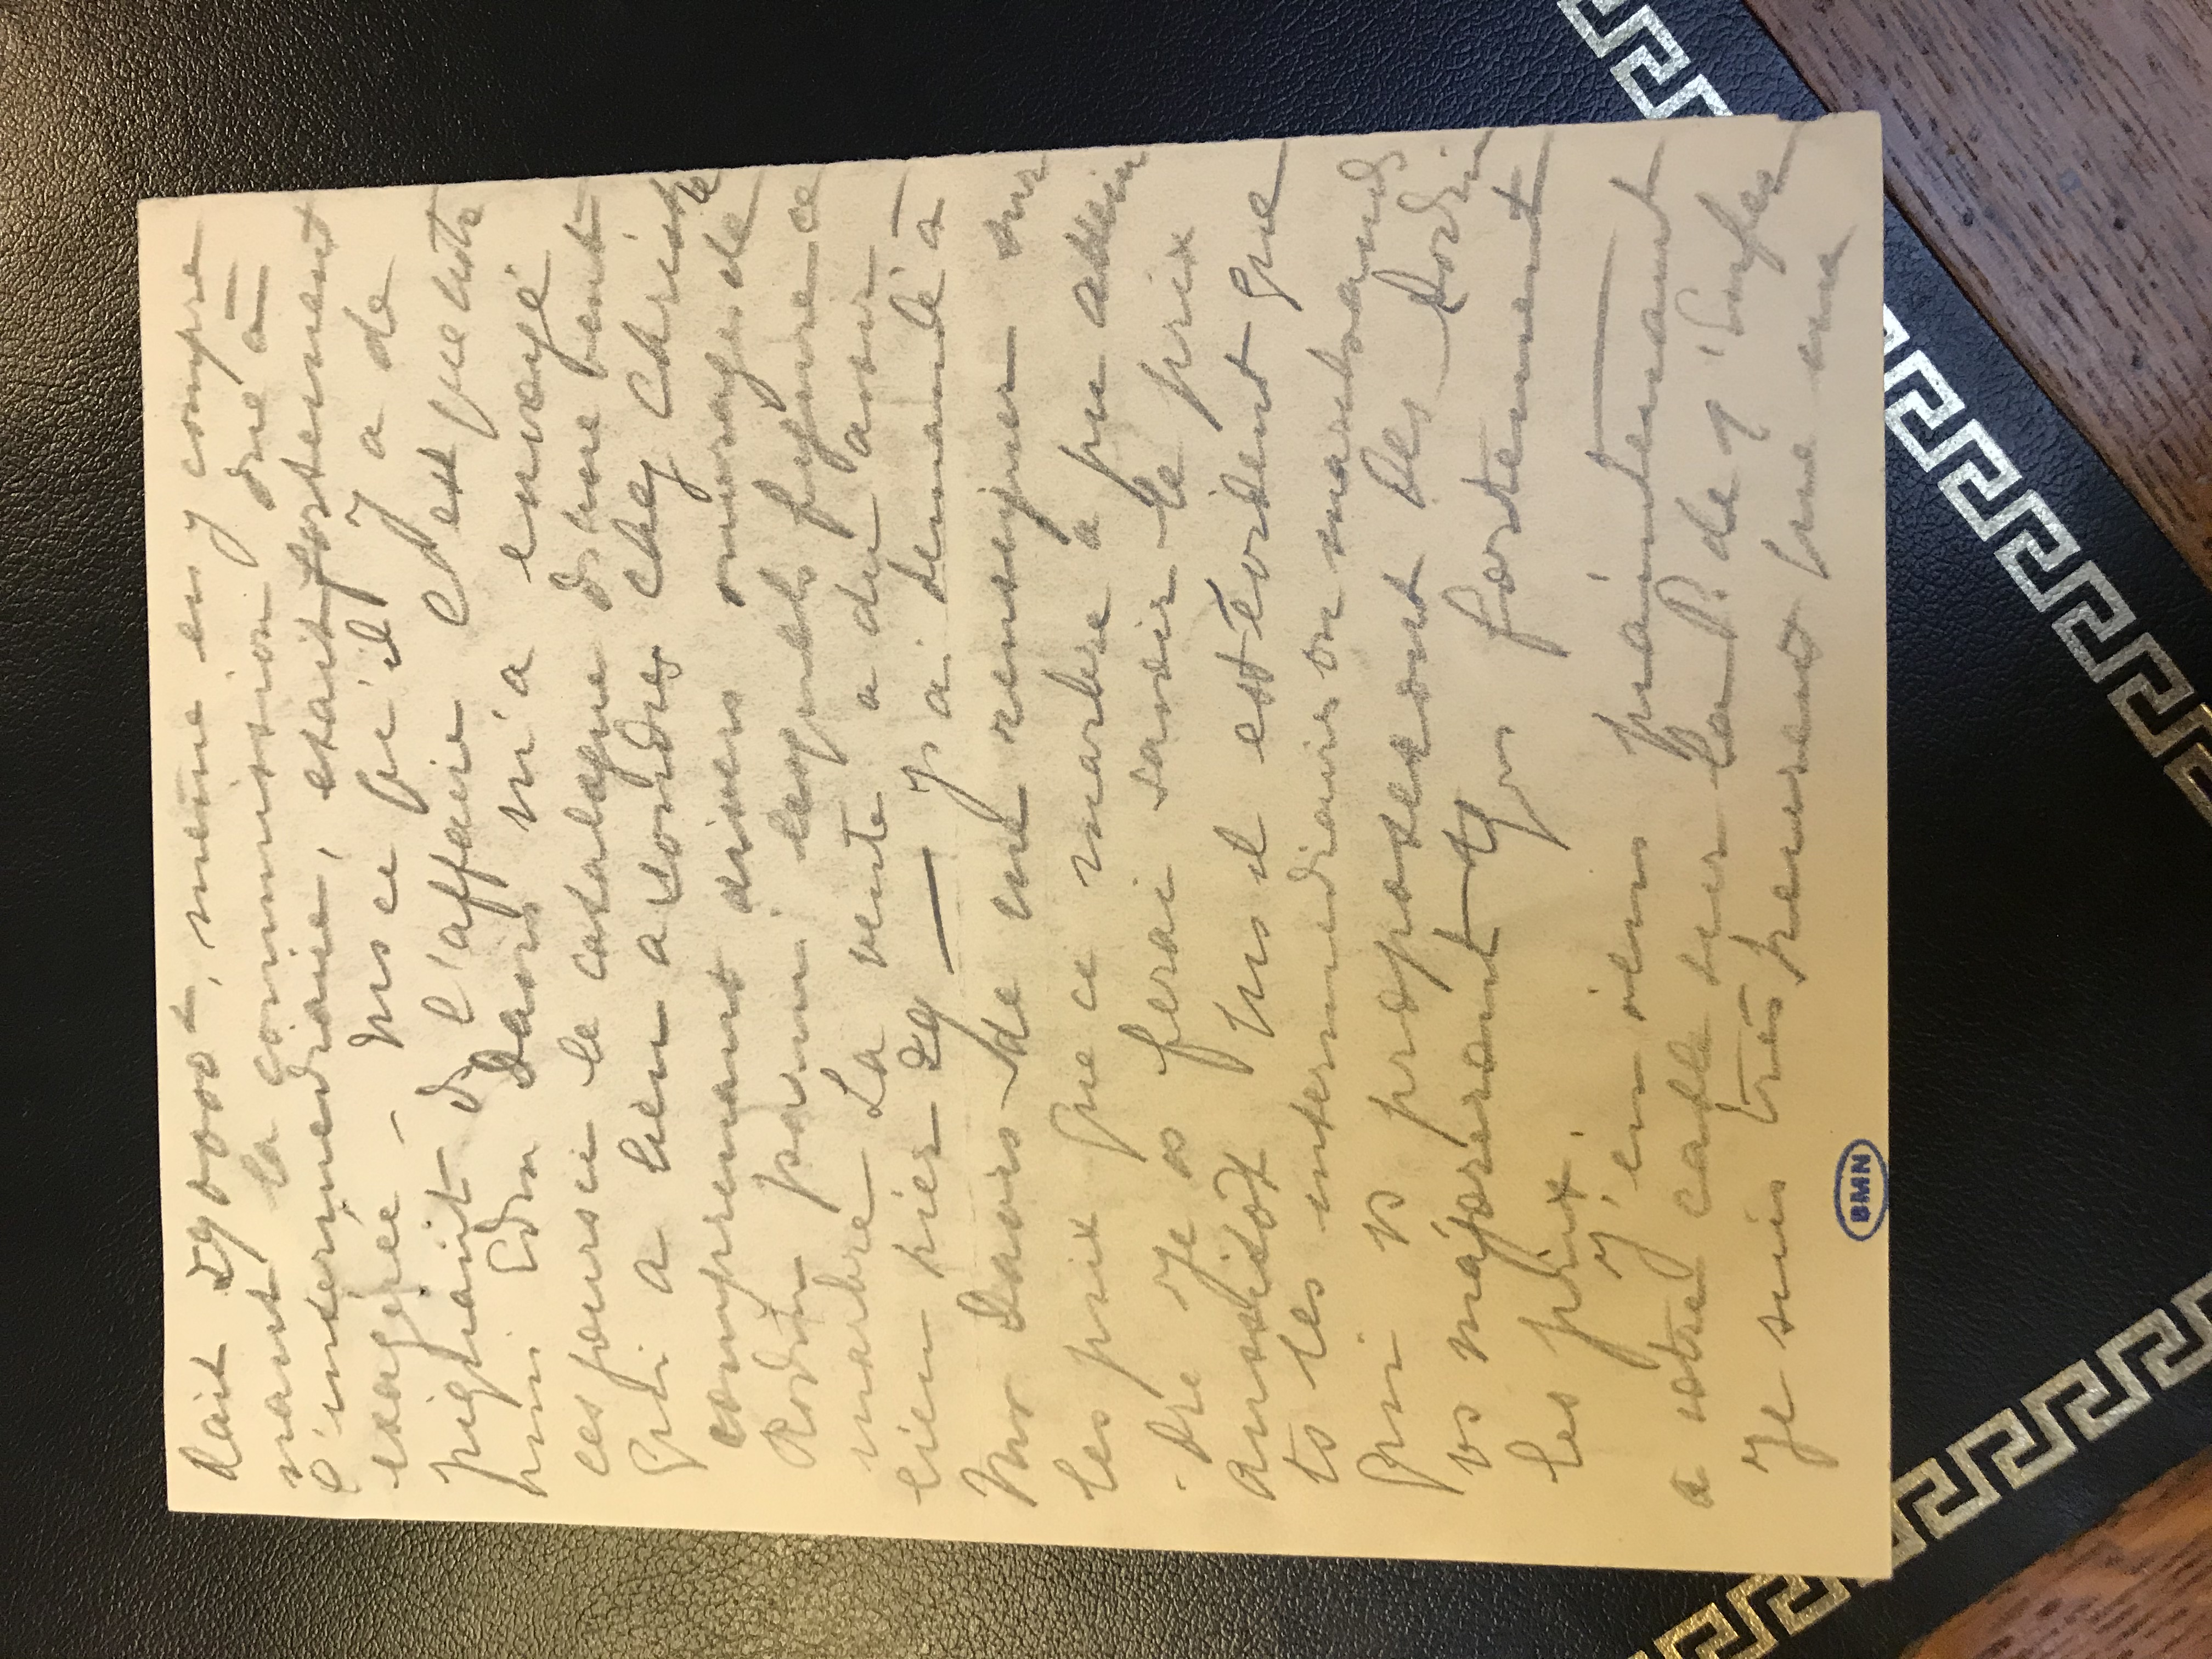 lait 29000 t, même en y compre
nant la commission due à
l'intermédiaire, était fortement
exagéré - Ms ce qu'il y a de
piquant ds l'affaire c'est que
mr Edm Davis m'a envoyé
ces jours ci le catalogue d'une vente
qui a lieu a Londres chez Christie
comprenant divers ouvrages de
Rodin parmi lesquels figure ce
marbre La vente a du avoir
lieu hier 29 — J'ai demandé à
Mr Davis de me renseigner sur
les prix que ce marbre a pu attein
dre Je vs ferai savoir le prix
aussitôt Ms il est évident que
ts les intermédiaires ou marchands
qui vs proposeront des Rodin
vs majoreront fortement
les prix.
J'en viens maintenant
a votre cable sur la P. de l'Enfer
Je suis très heureux que
BMN